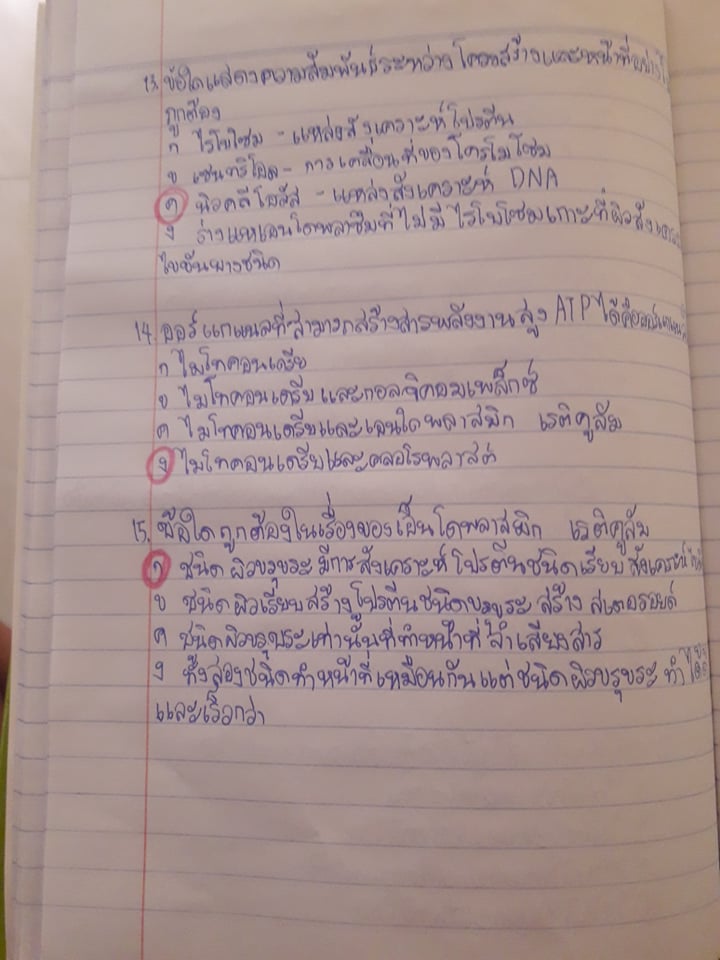 13. ข้อใดแสดงความสัมพันธ์ระหว่างโครงสร้างและหน้าที่
ถูกต้อง
ก ไรโบโซม - แหล่งสังเคราะห์โปรตีน
ข เซนทริโอล - การเคลื่อนที่ของโครโมโซม
ค นิวคลีโอลัส - แหล่งสังเคราะห์ DNA
ง ร่างแหเอนโดพลาซึมที่ไม่มีไรโบโซมเกาะที่ผิว
ไขมันบางชนิด
14. ออร์แกเนลที่สามารถสร้างสารพลังงานสูง ATP ได้คือ
ก ไมโทคอนเดรีย
ข ไมโทคอนเดรียและกอลจิคอมเพล็กซ์
ค ไมโทคอนเดรียและเอนโดพลาสมิก เรติคูลัม
ง ไมโทคอนเดรียและคลอโรพลาสต์
15. ข้อใดถูกต้องในเรื่องของเอ็นโดพลาสมิก เรติคูลัม
ก ชนิดผิวขรุขระมีการสังเคราะห์โปรตีนชนิดเรียบสังเคราะห์
ข ชนิดผิวเรียบสร้างโปรตีนชนิดขรุขระ สร้าง สเตอรอยด์
ค ชนิดผิวขรุขระเท่านั้นที่ทำหน้าที่ลำเลียงสาร
ง ทั้งสองชนิดทำหน้าที่เหมือนกันแต่ชนิดผิวขรุขระ ทำได้
และเร็วกว่า